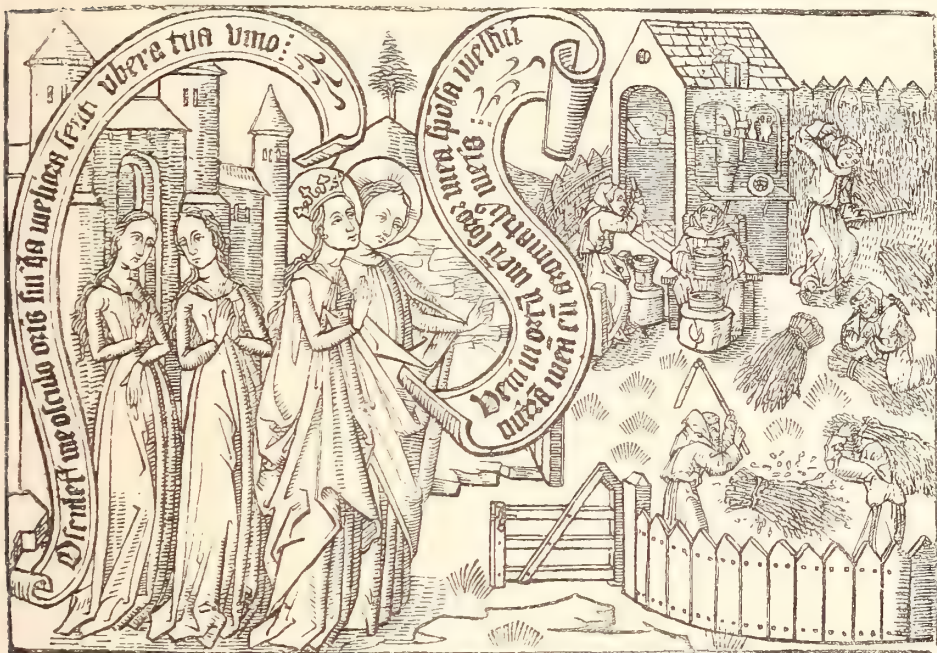 Osculet᷑ me osculo oris sui q̄a meliora sūt vbera tua vino :
Veni in ortū meū soror mea spōsa messui
mirrā meā cū aromatibꝰ meis